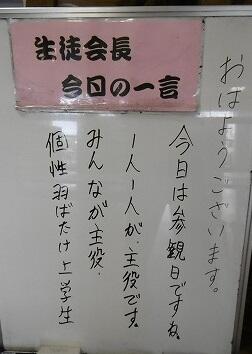 生徒会長
今日の一言
おはようございます。
今日は参観日ですね。
1人1人が、主役です。
みんなが主役・
個性羽ばたけ上学生